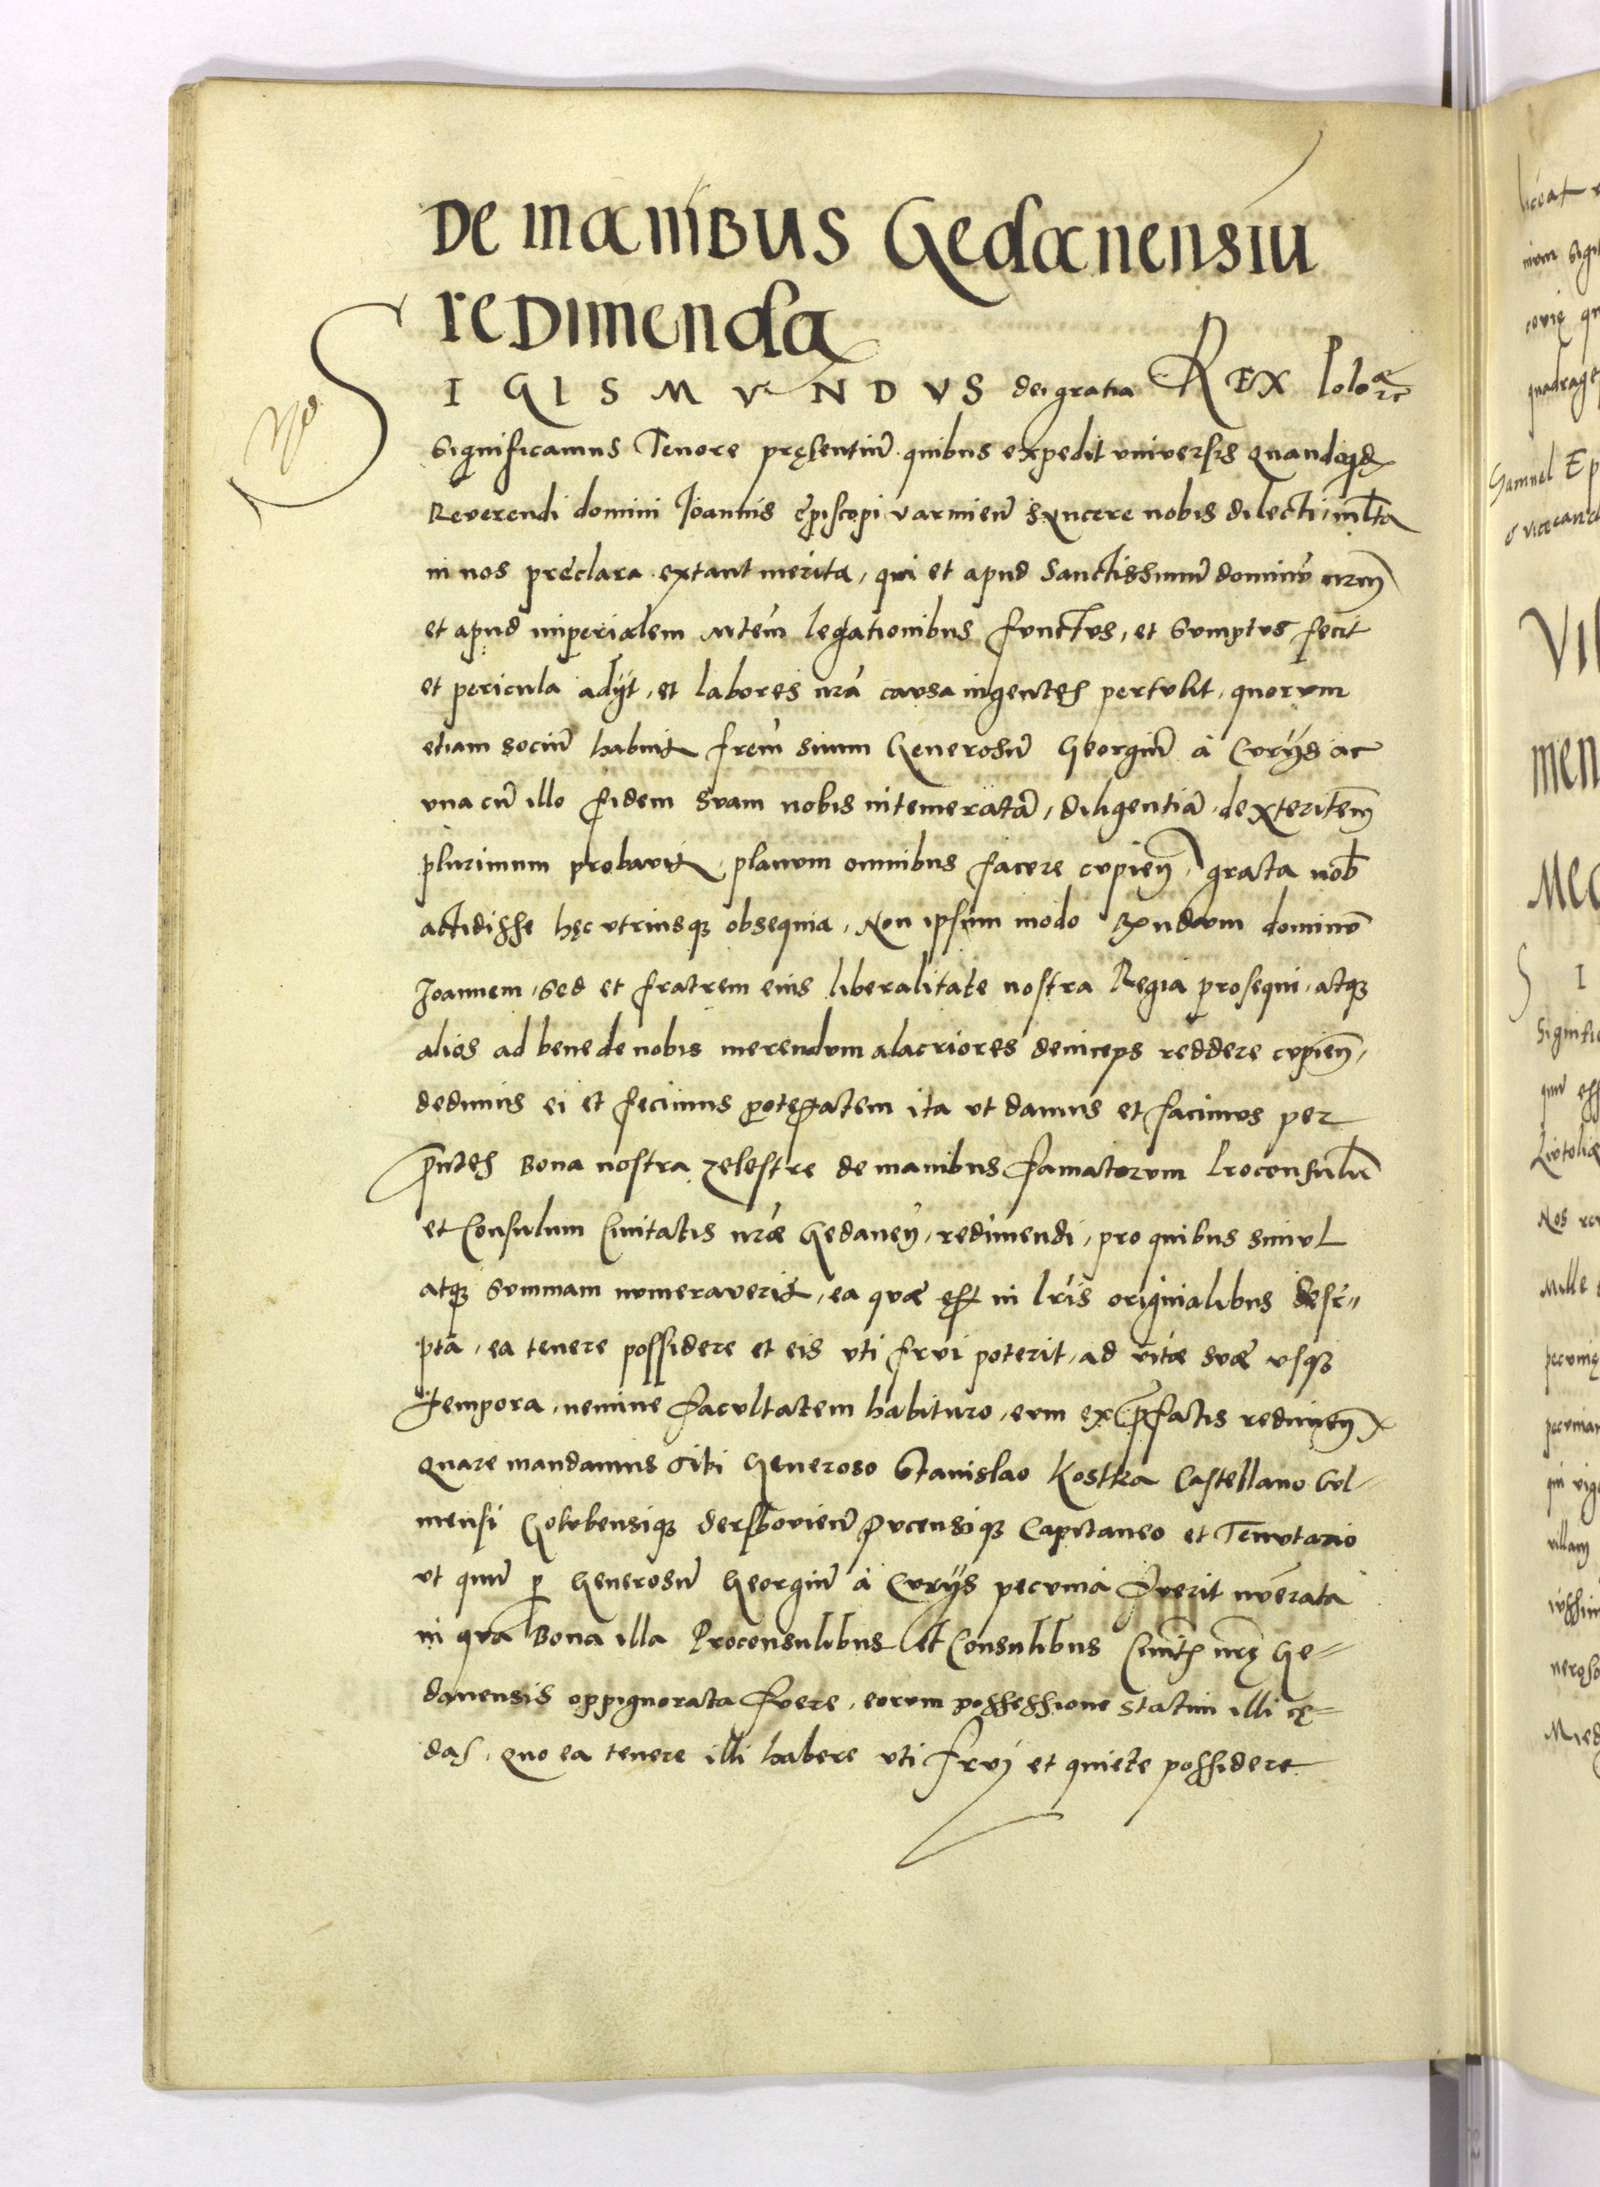 De manibus Gedanensiū
redimenda
SIGISMVNDVS dei gratia REX Poloæ etc
Significamus Tenore pręsentiū quibus expedit vniversis Quandoquidē
Reverendi domini Joannis ępiscopi varmień syncere nobis dilecti, mľta
in nos preclara extant merita, qui et apud Sanctissimū dominū nrm̄
et apud imperialem Mtem legationibus functus, et Sumptus fecit
et pericula adijt, et labores nra causa ingentes pertulit, quorum
etiam sociū habuit frem suum Generosū Georgiū à Curijs ac
vna cū illo fidem suam nobis intemeratā, diligentiā, dexteritem̄
plurimum probavit, planum omnibus facere cupień, grata nob̄
accidisse hęc vtriusque obsequia, Non ipsum modo Rndum dominū
Joannem, Sed et fratrem eius liberalitate nostra Regia prosequi, atque
alios ad bene de nobis merendum alacriores deinceps reddere cupień,
dedimus ei et fecimus potestatem ita ut damus et facimus per
pn̄tes Bona nostra zelestre de manibus famatorum Proconsulū
et Consulum Civitatis nræ Gedaneń, redimendi, pro quibus simul
atque Summam numeraverit, ea quæ est in lris originalibus descri=
pta, ea tenere possidere et eis vti frui poterit, ad vitæ suæ vsque
tempora, nemine facultatem habituro, eum ex præfatis redimeń
Quare mandamus tibi Generoso Stanislao Kostka Castellano Cul=
mensi Golubensique Derssovień Pucensique Capitaneo et Tenutario
ut quū p̱ Generosū Georgiū à Curijs pecunia fuerit nūerata
in qua Bona illa Proconsulibus et Consulibus Civitis nrę Ge=
danensis oppignorata fuere, eorum possessione statim illi cę=
das, Quo ea tenere illi habere vti frui et quiete possidere